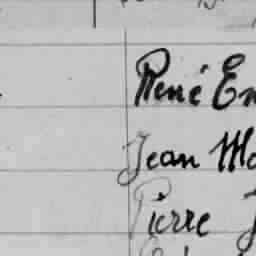 René Em
Jean Ma
Pierre J